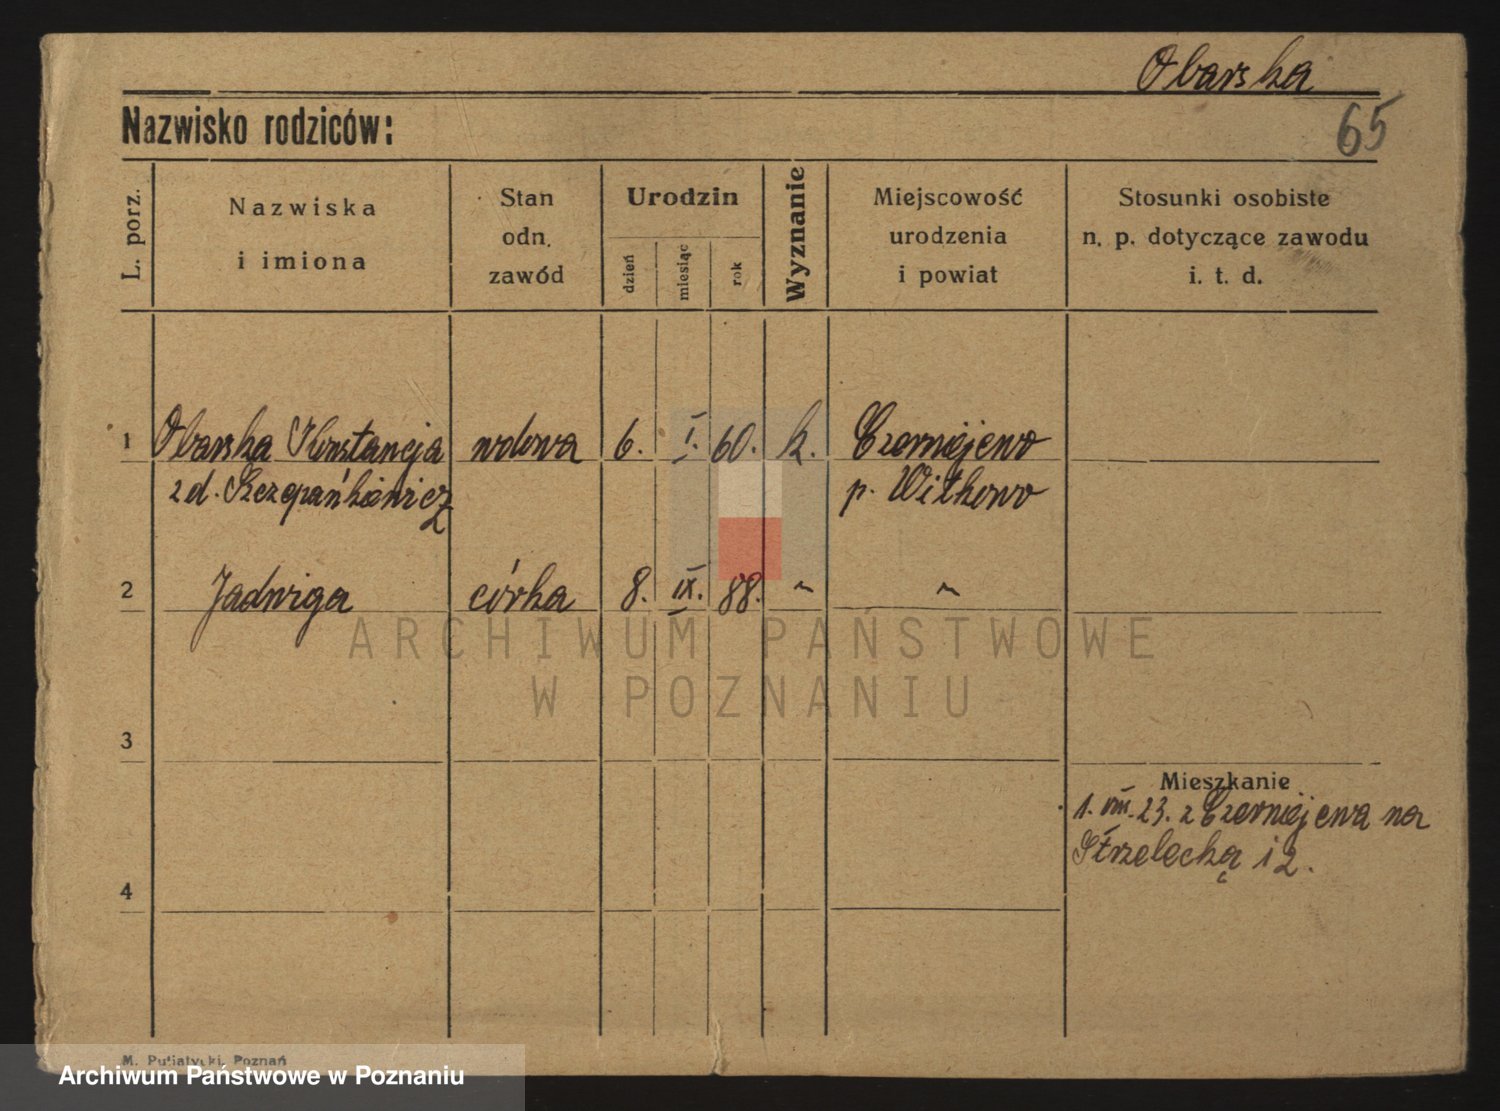 Obarska
Nazwisko rodziców:
65
L. porz.
Nazwiska
i imiona
Stan
odn.
zawód
Urodzin
dzień
miesiąc
rok
Wyznanie
Miejscowość
urodzenia
i powiat
Stosunki osobiste
n. p. dotyczące zawodu
i. t. d.
1 Obarska Konstancja wdowa 6. I. 60. k. Czerniejewo
z d. Szczepańkiewicz p. Witkowo
2 Jadwiga córka 8. IX. 88. " "
ARCHIWUM PAŃSTWOWE
W POZNANIU
3
Mieszkanie
1. VIII. 23. z Czerniejewa na
Strzelecką 12.
4
M. Putiatycki, Poznań
Archiwum Państwowe w Poznaniu